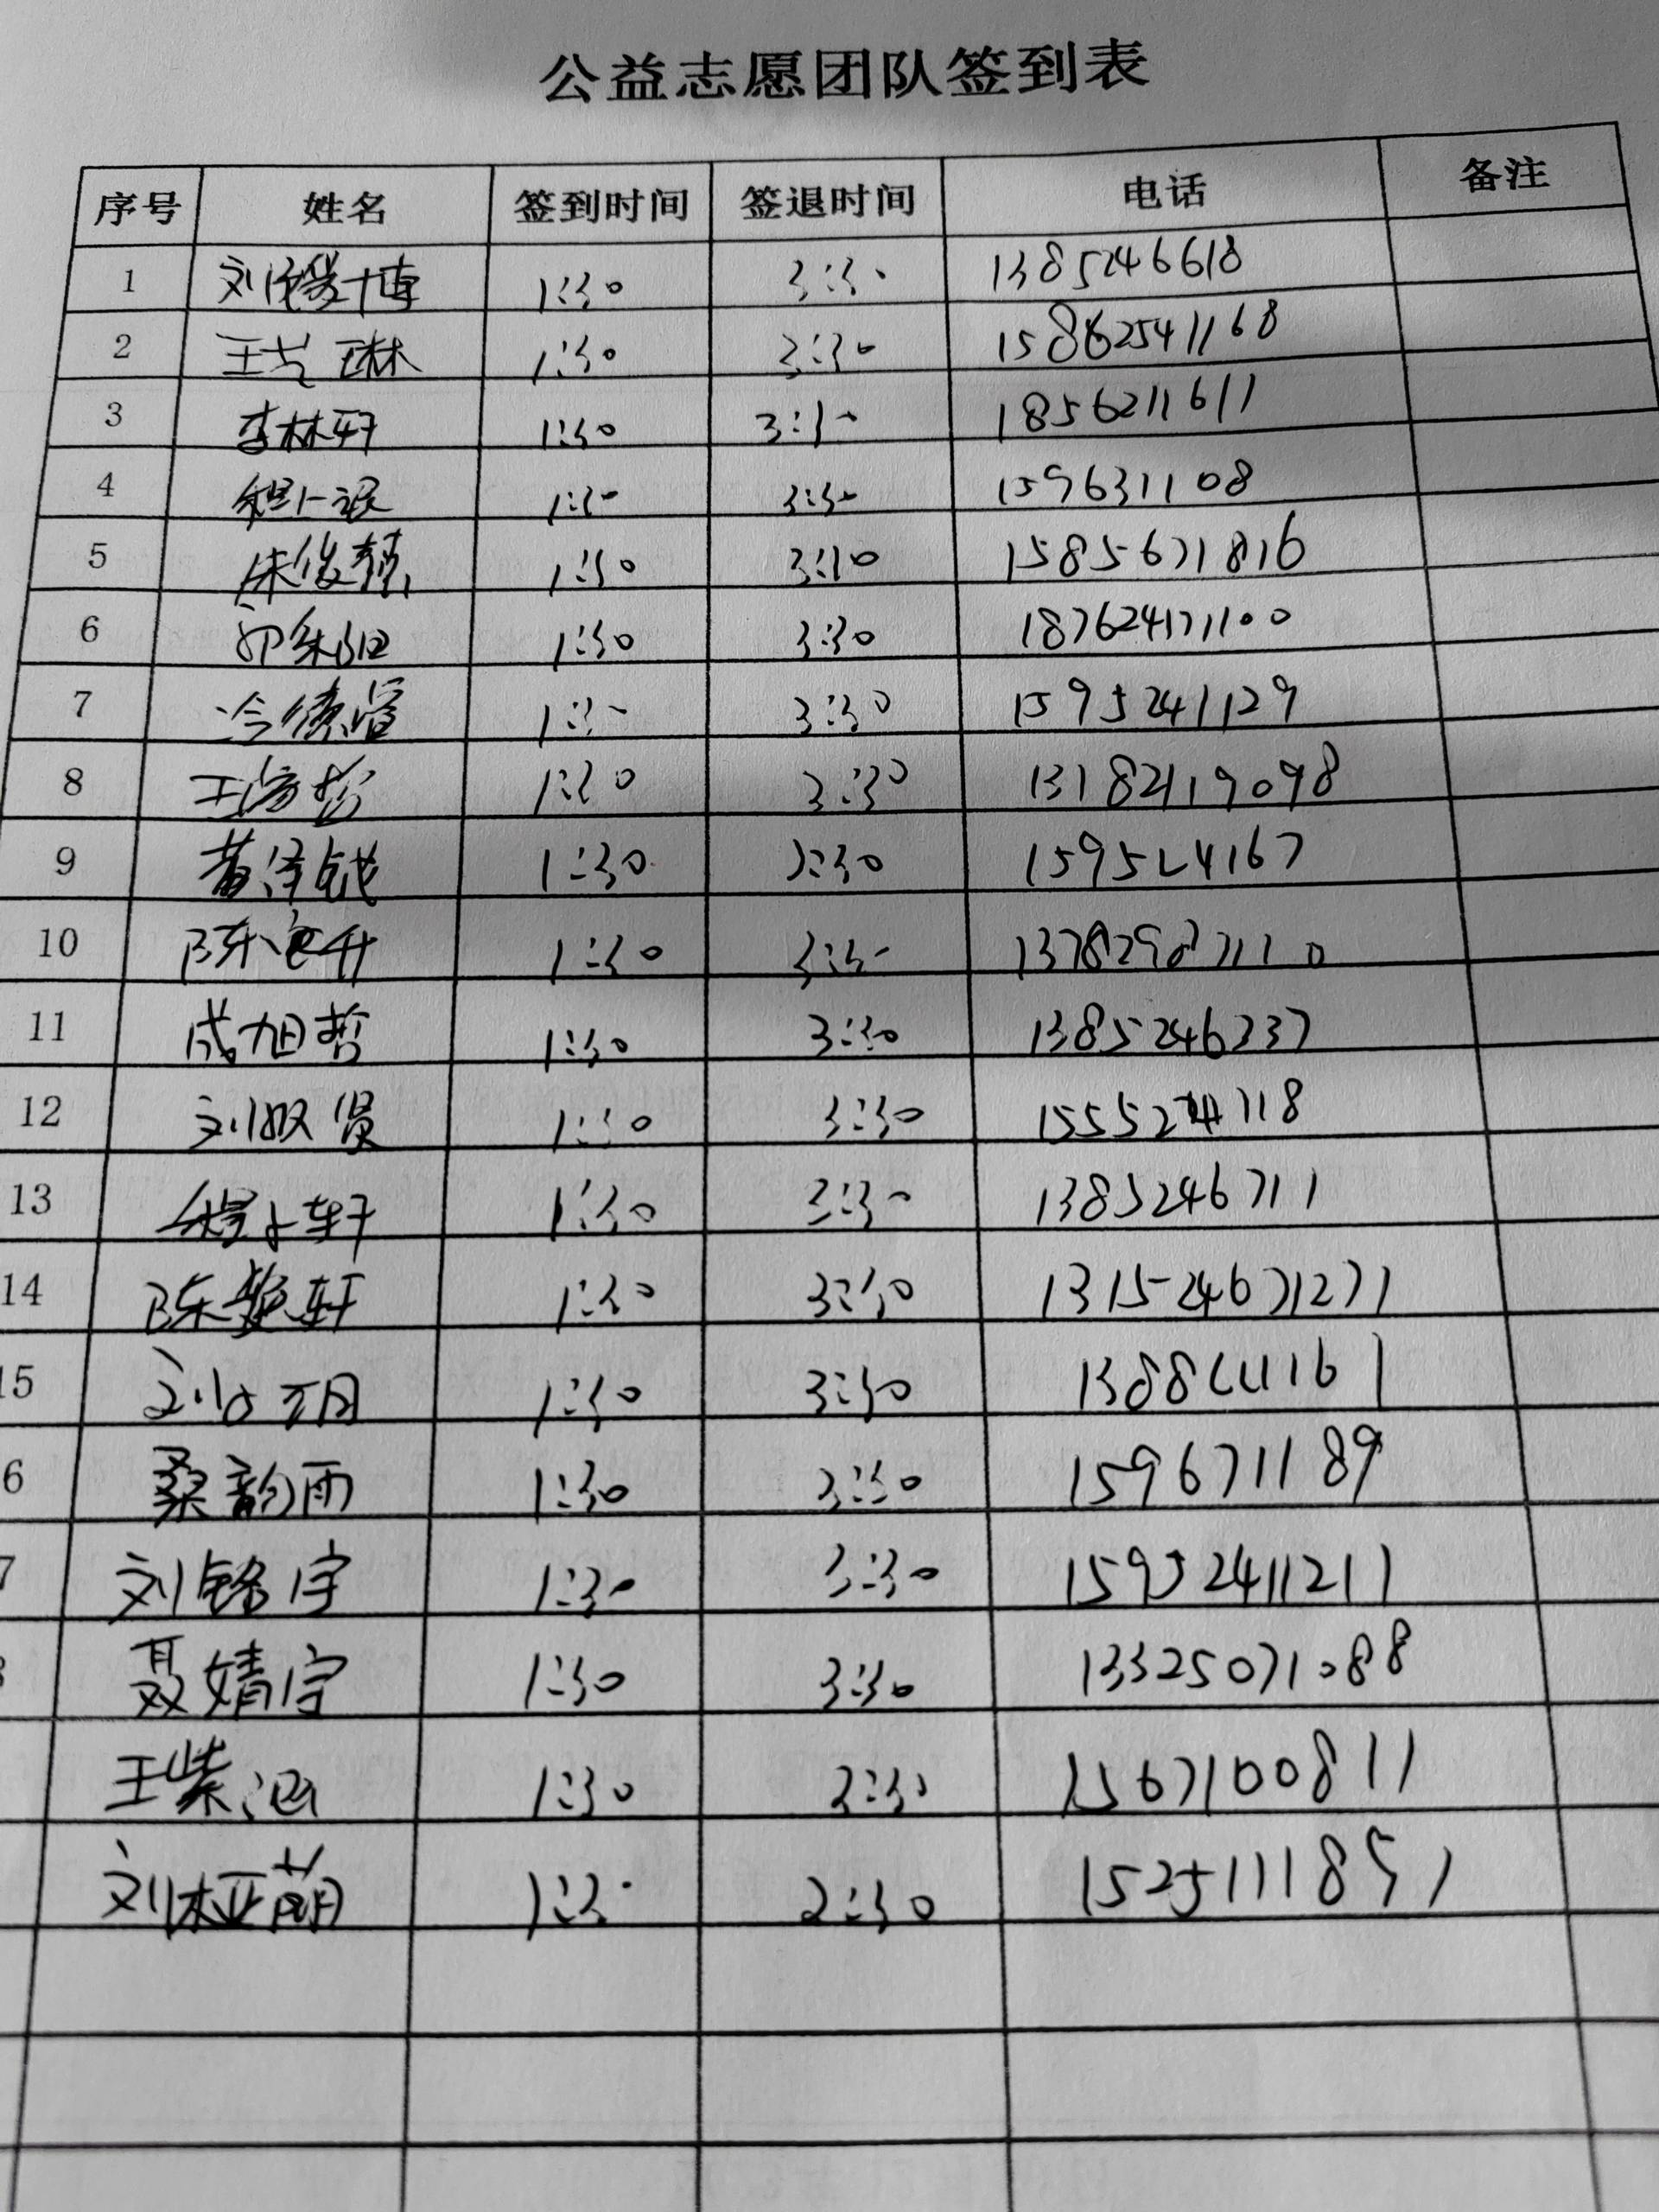 公益志愿团队签到表
序号 姓名 签到时间 签退时间 电话 备注
1 刘 博 1:30 3:30 1385246618
2 王艺琳 1:30 3:30 15862541168
3 李林轩 1:30 3:30 1856211611
4 1:30 3:30 159631108
5 朱俊 1:30 3:10 1585671816
6 1:30 3:30 187624171100
7 冷 1:30 3:30 1595241129
8 王 哲 1:30 3:30 13182419098
9 黄泽钺 1:30 3:30 159524167
10 陈 升 1:30 3:30
11 成旭哲 1:30 3:30 1385246337
12 刘 贤 1:30 3:30
13 轩 1:30 3:30 1385246711
14 陈 轩 1:30 3:30 131524671271
15 刘 1:30 3:30
6 桑韵雨 1:30 3:30 1596711189
7 刘铭宇 1:30 3:30 15952411211
聂婧宇 1:30 3:30 13325071088
王紫涵 1:30 3:30 1567100811
刘桠萌 1:30 2:30 15251118571